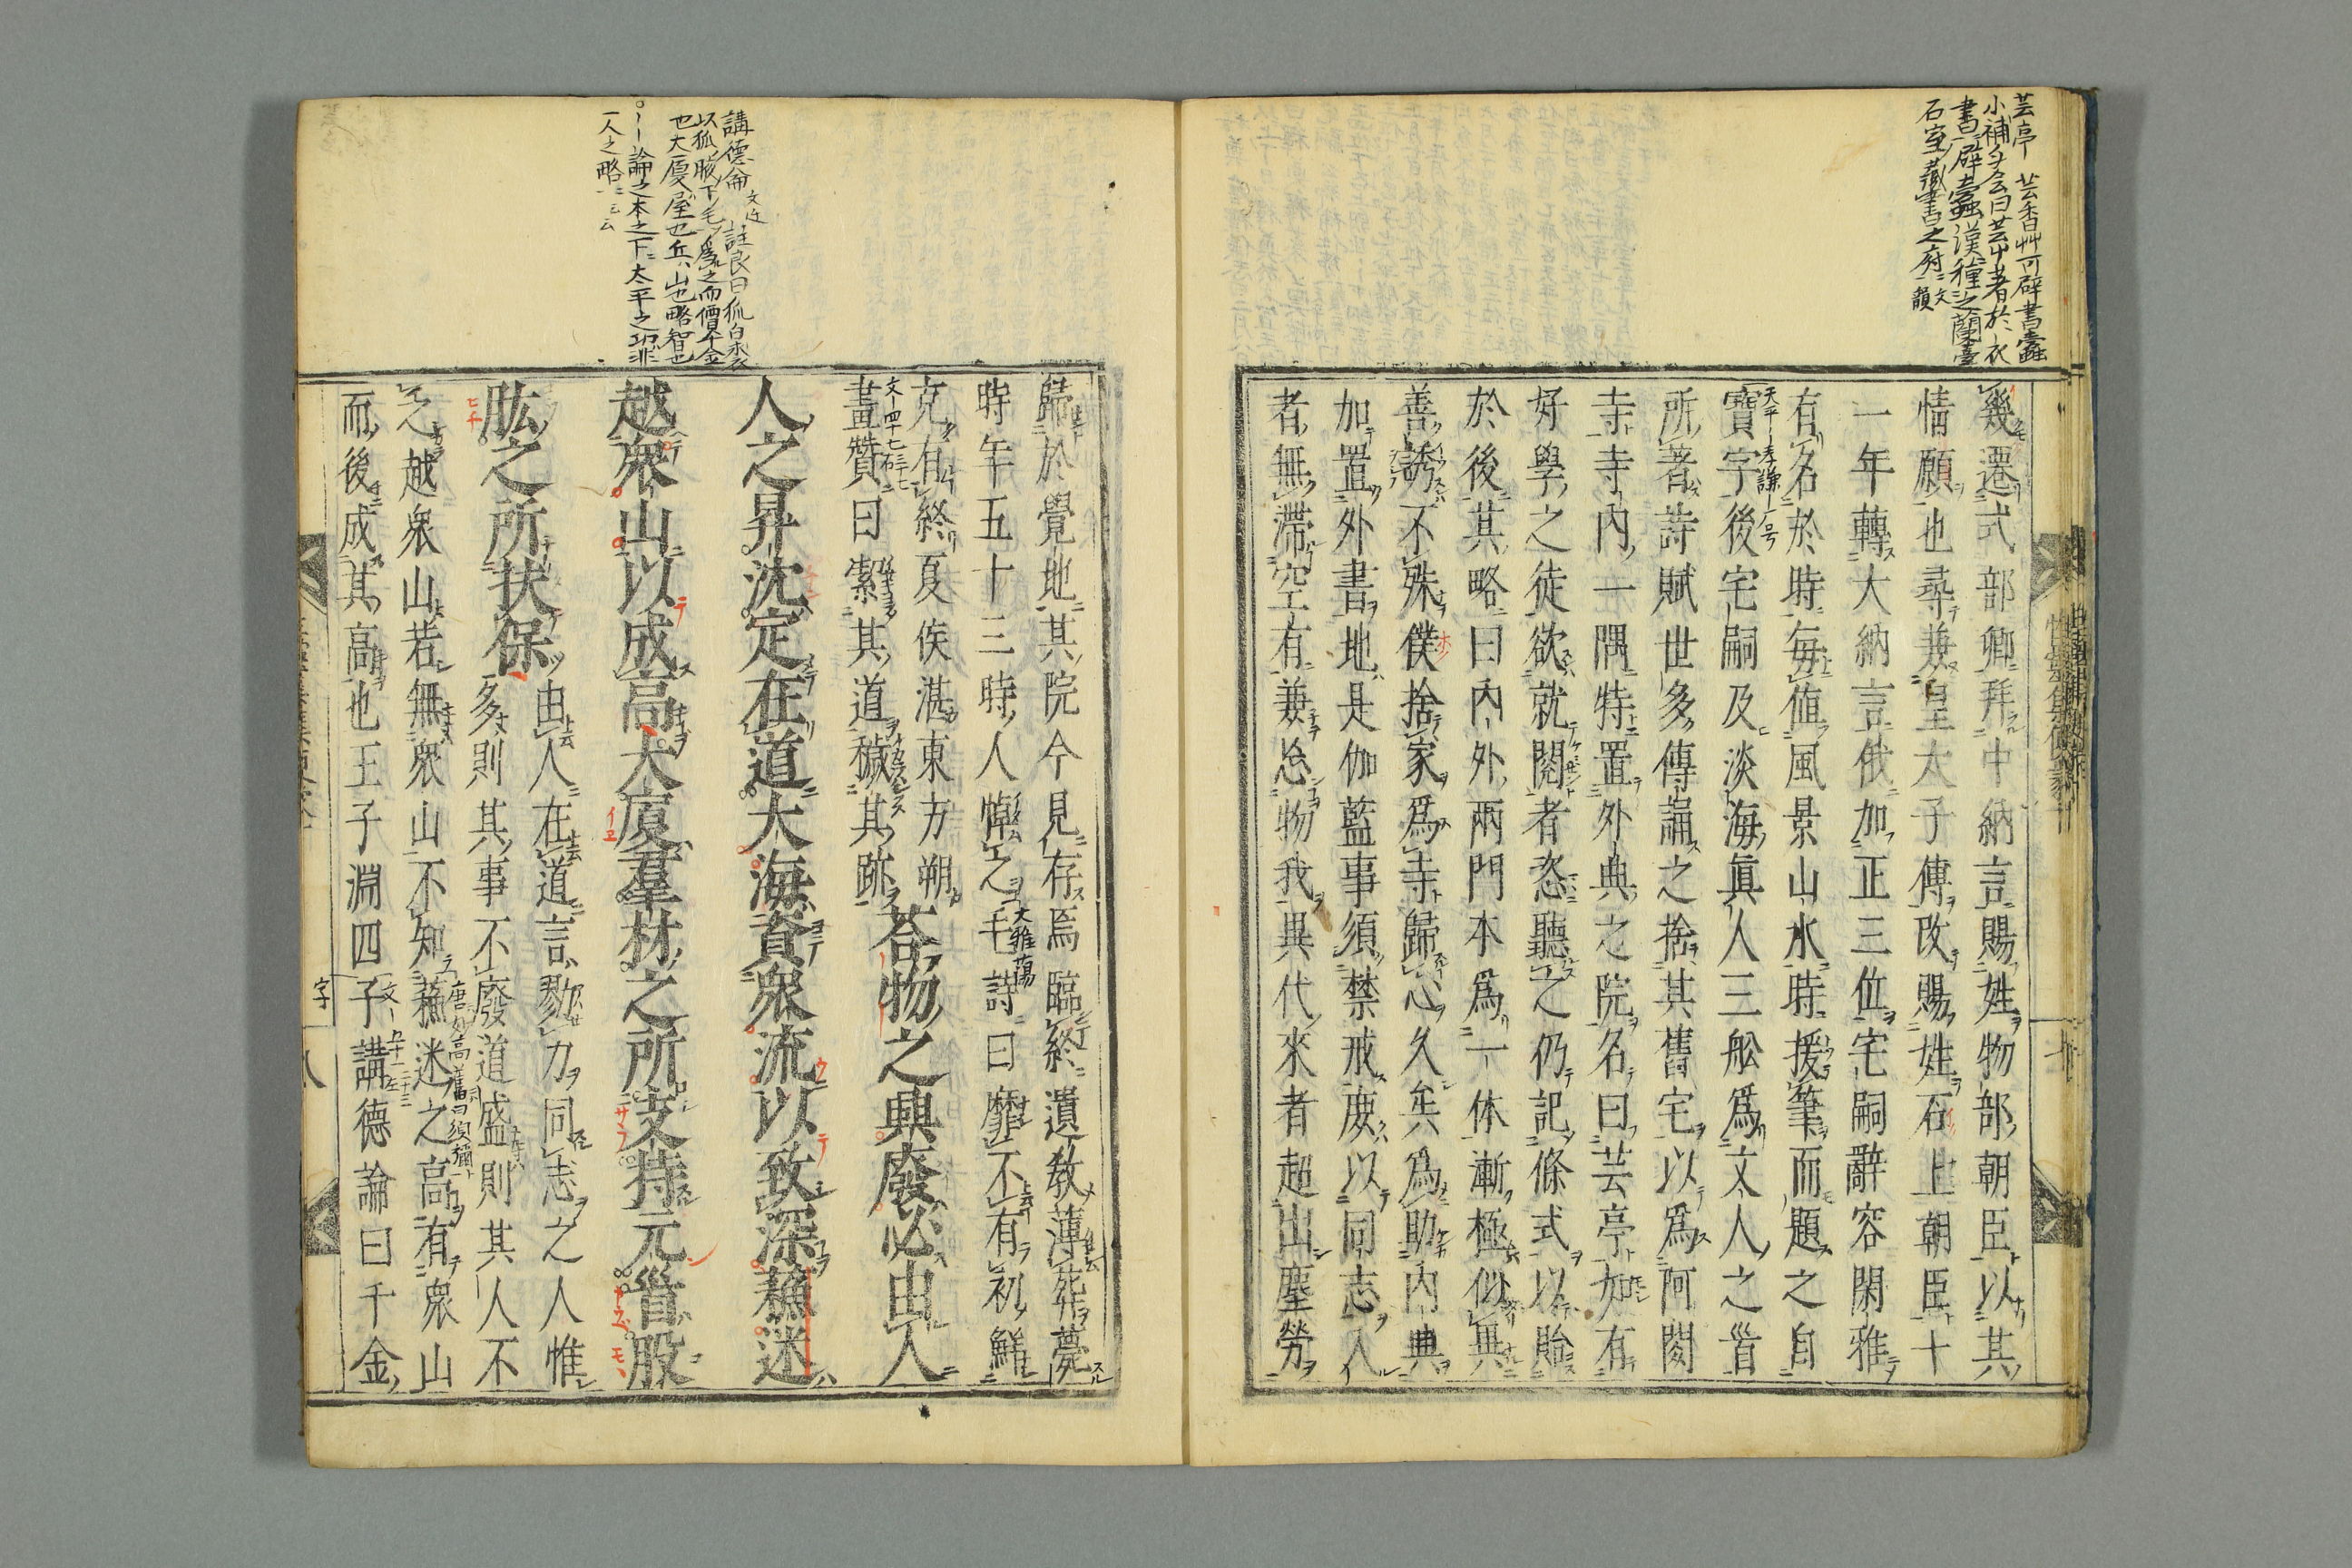 芸亭 芸香艸可辟書蠹
書辟蠹漢種之蘭臺
石室藏書之府
幾遷式部卿拜中納言賜姓物部朝臣以其
情願也尋兼皇太子傅改賜姓石上朝臣十
一年轉大納言俄加正三位宅嗣辭容閑雅
有名於時每值風景山水時援筆而題之自
寶字後宅嗣及淡海眞人三舩爲文人之首
所著詩賦世多傳誦之捨其舊宅以爲阿閦
寺寺內一隅特置外典之院名曰芸亭如有
好學之徒欲就閱者恣聽之仍記條式以貽
於後其略曰內外兩門本爲一体漸極似異
善誘不殊僕捨家爲寺歸心久矣爲助內典
加置外書地是伽藍事須禁戒庶以同志入
者無滯空有兼忘物我異代來者超出塵勞
講德論 文 註良曰狐白裘
以狐腋下毛爲之而價千金
也大厦屋也丘山也略智也
論之本之下太平之功非
一人之略云云
歸於覺地其院今見存焉臨終遺教薄葬薨
時年五十三時人悼之毛詩曰靡不有初鮮
克有終夏侯湛東方朔
畫贊曰潔其道穢其跡荅物之興廢必由人
人之昇沈定在道大海資衆流以致深蘓迷
越衆山以成高大廈羣材之所支持元首股
肱之所扶保
由人在道言勠力同志之人惟
多則其事不廢道盛則其人不
之越衆山若無衆山不知蘓迷之高有衆山
而後成其高也王子淵四子講德論曰千金